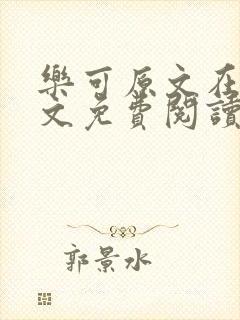 樂可原文在
文免費閱讀
郭景水